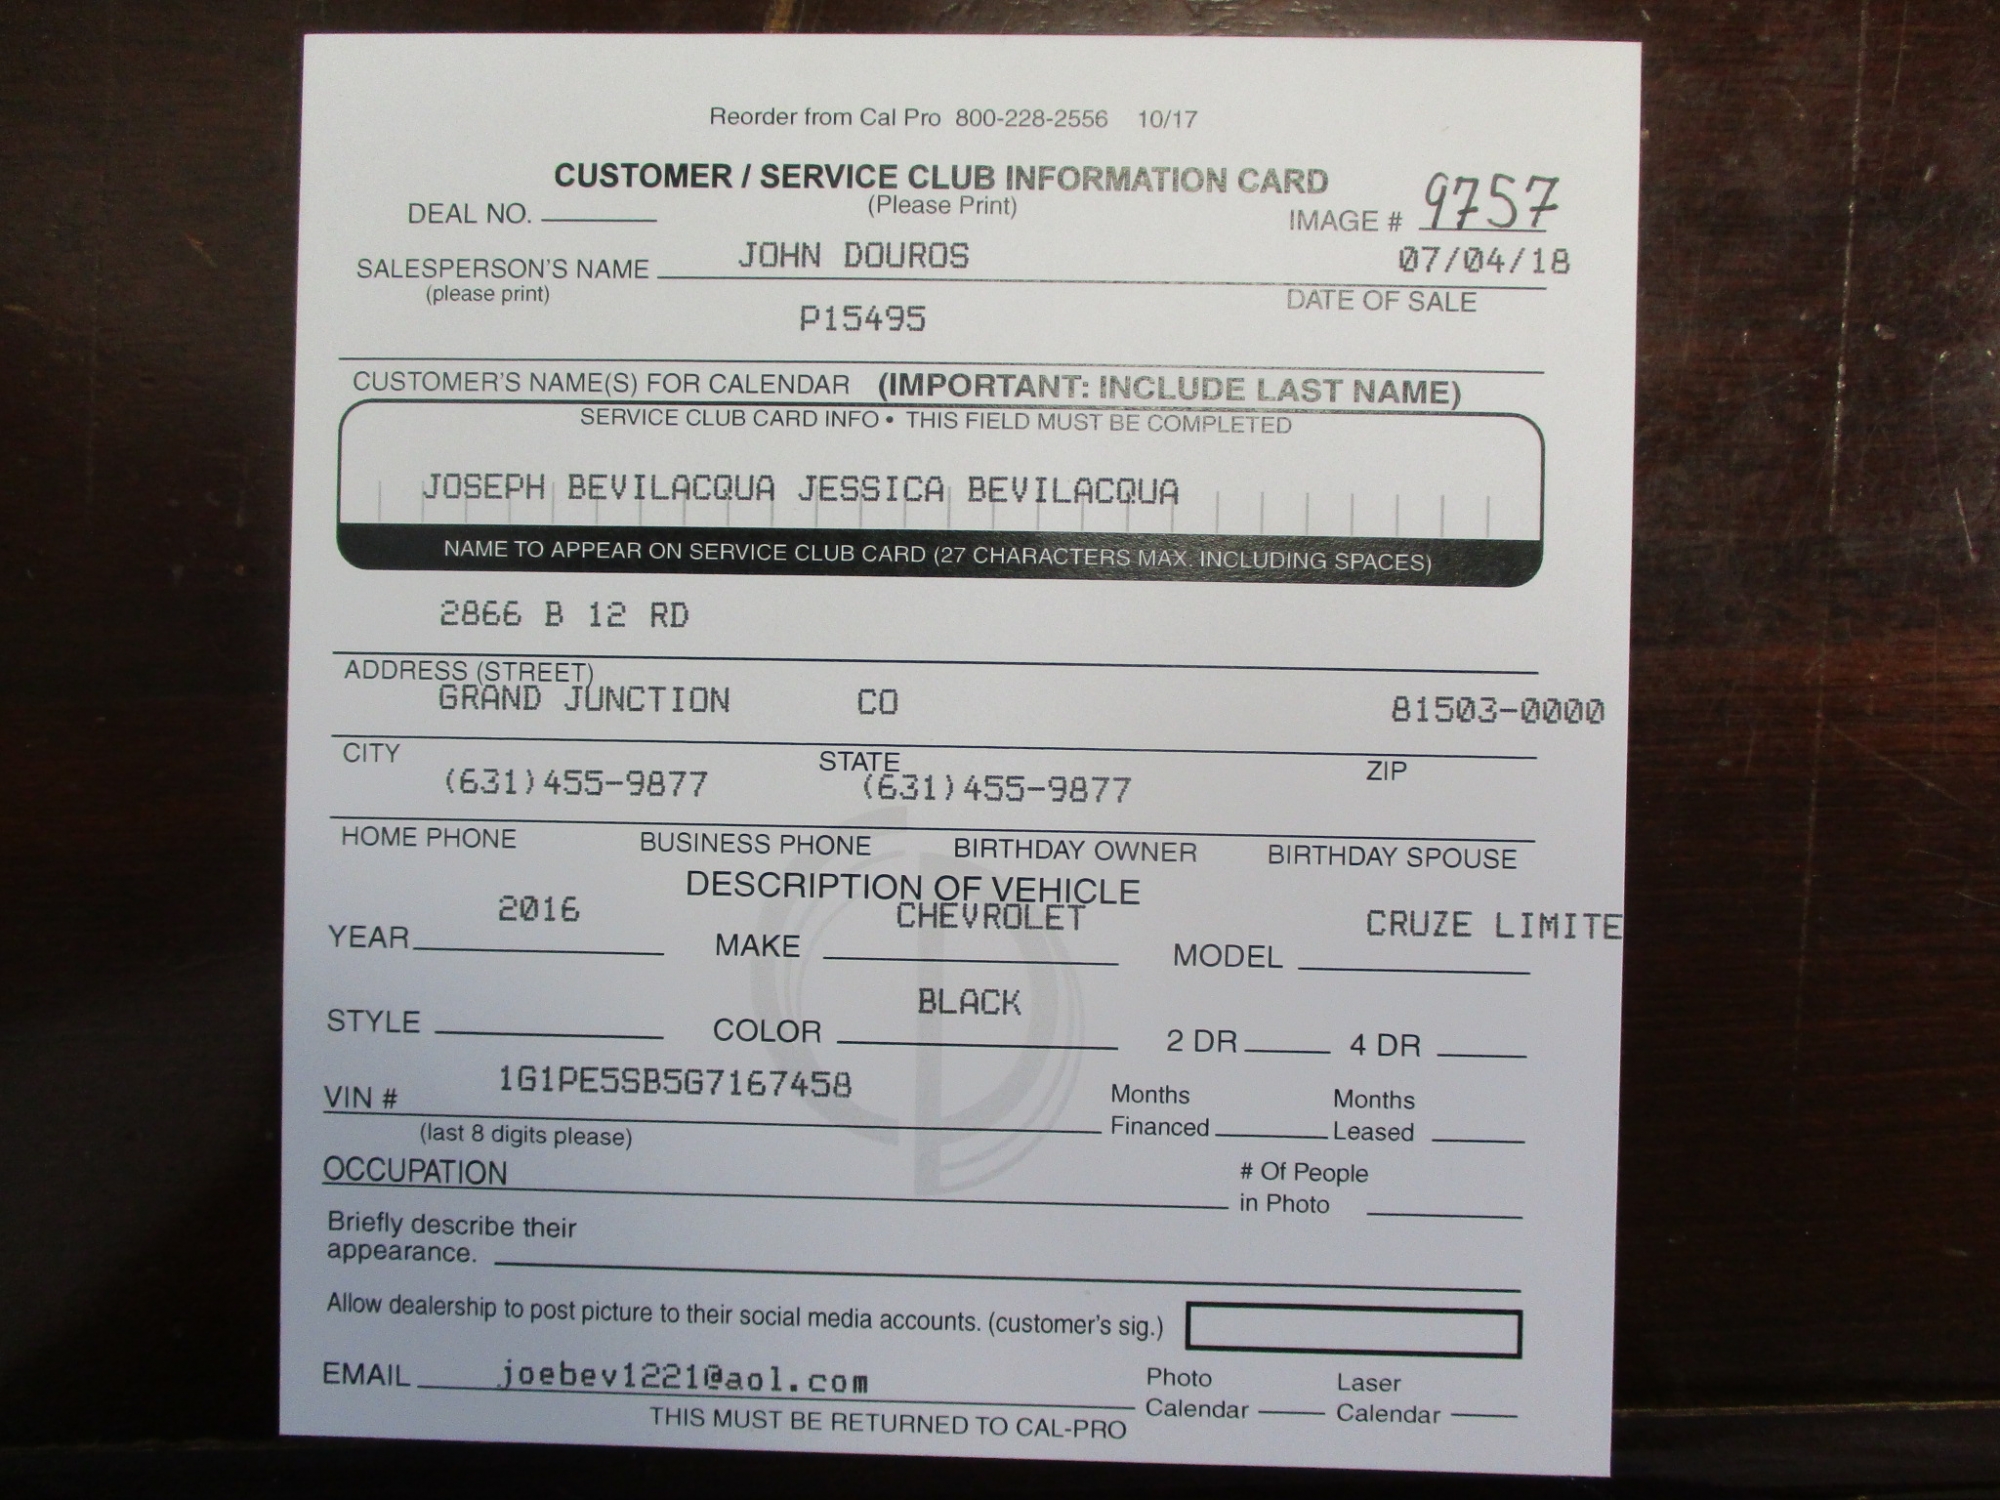 Reorder from Cal Pro 800-228-2556 10/17
CUSTOMER / SERVICE CLUB INFORMATION CARD
(Please Print)
DEAL NO. IMAGE # 9757
SALESPERSON'S NAME JOHN DOUROS 07/04/18
(please print) DATE OF SALE
P15495
CUSTOMER'S NAME(S) FOR CALENDAR (IMPORTANT: INCLUDE LAST NAME)
SERVICE CLUB CARD INFO • THIS FIELD MUST BE COMPLETED
JOSEPH BEVILACQUA JESSICA BEVILACQUA
NAME TO APPEAR ON SERVICE CLUB CARD (27 CHARACTERS MAX. INCLUDING SPACES)
2866 B 12 RD
ADDRESS (STREET)
GRAND JUNCTION CO 81503-0000
CITY STATE ZIP
(631)455-9877 (631)455-9877
HOME PHONE BUSINESS PHONE BIRTHDAY OWNER BIRTHDAY SPOUSE
DESCRIPTION OF VEHICLE
2016 CHEVROLET CRUZE LIMITE
YEAR MAKE MODEL
BLACK
STYLE COLOR 2 DR 4 DR
VIN # 1G1PE5SB5G7167458 Months Financed Months Leased
(last 8 digits please)
OCCUPATION # Of People in Photo
Briefly describe their
appearance.
Allow dealership to post picture to their social media accounts. (customer's sig.)
EMAIL joebev1221@aol.com Photo Calendar Laser Calendar
THIS MUST BE RETURNED TO CAL-PRO